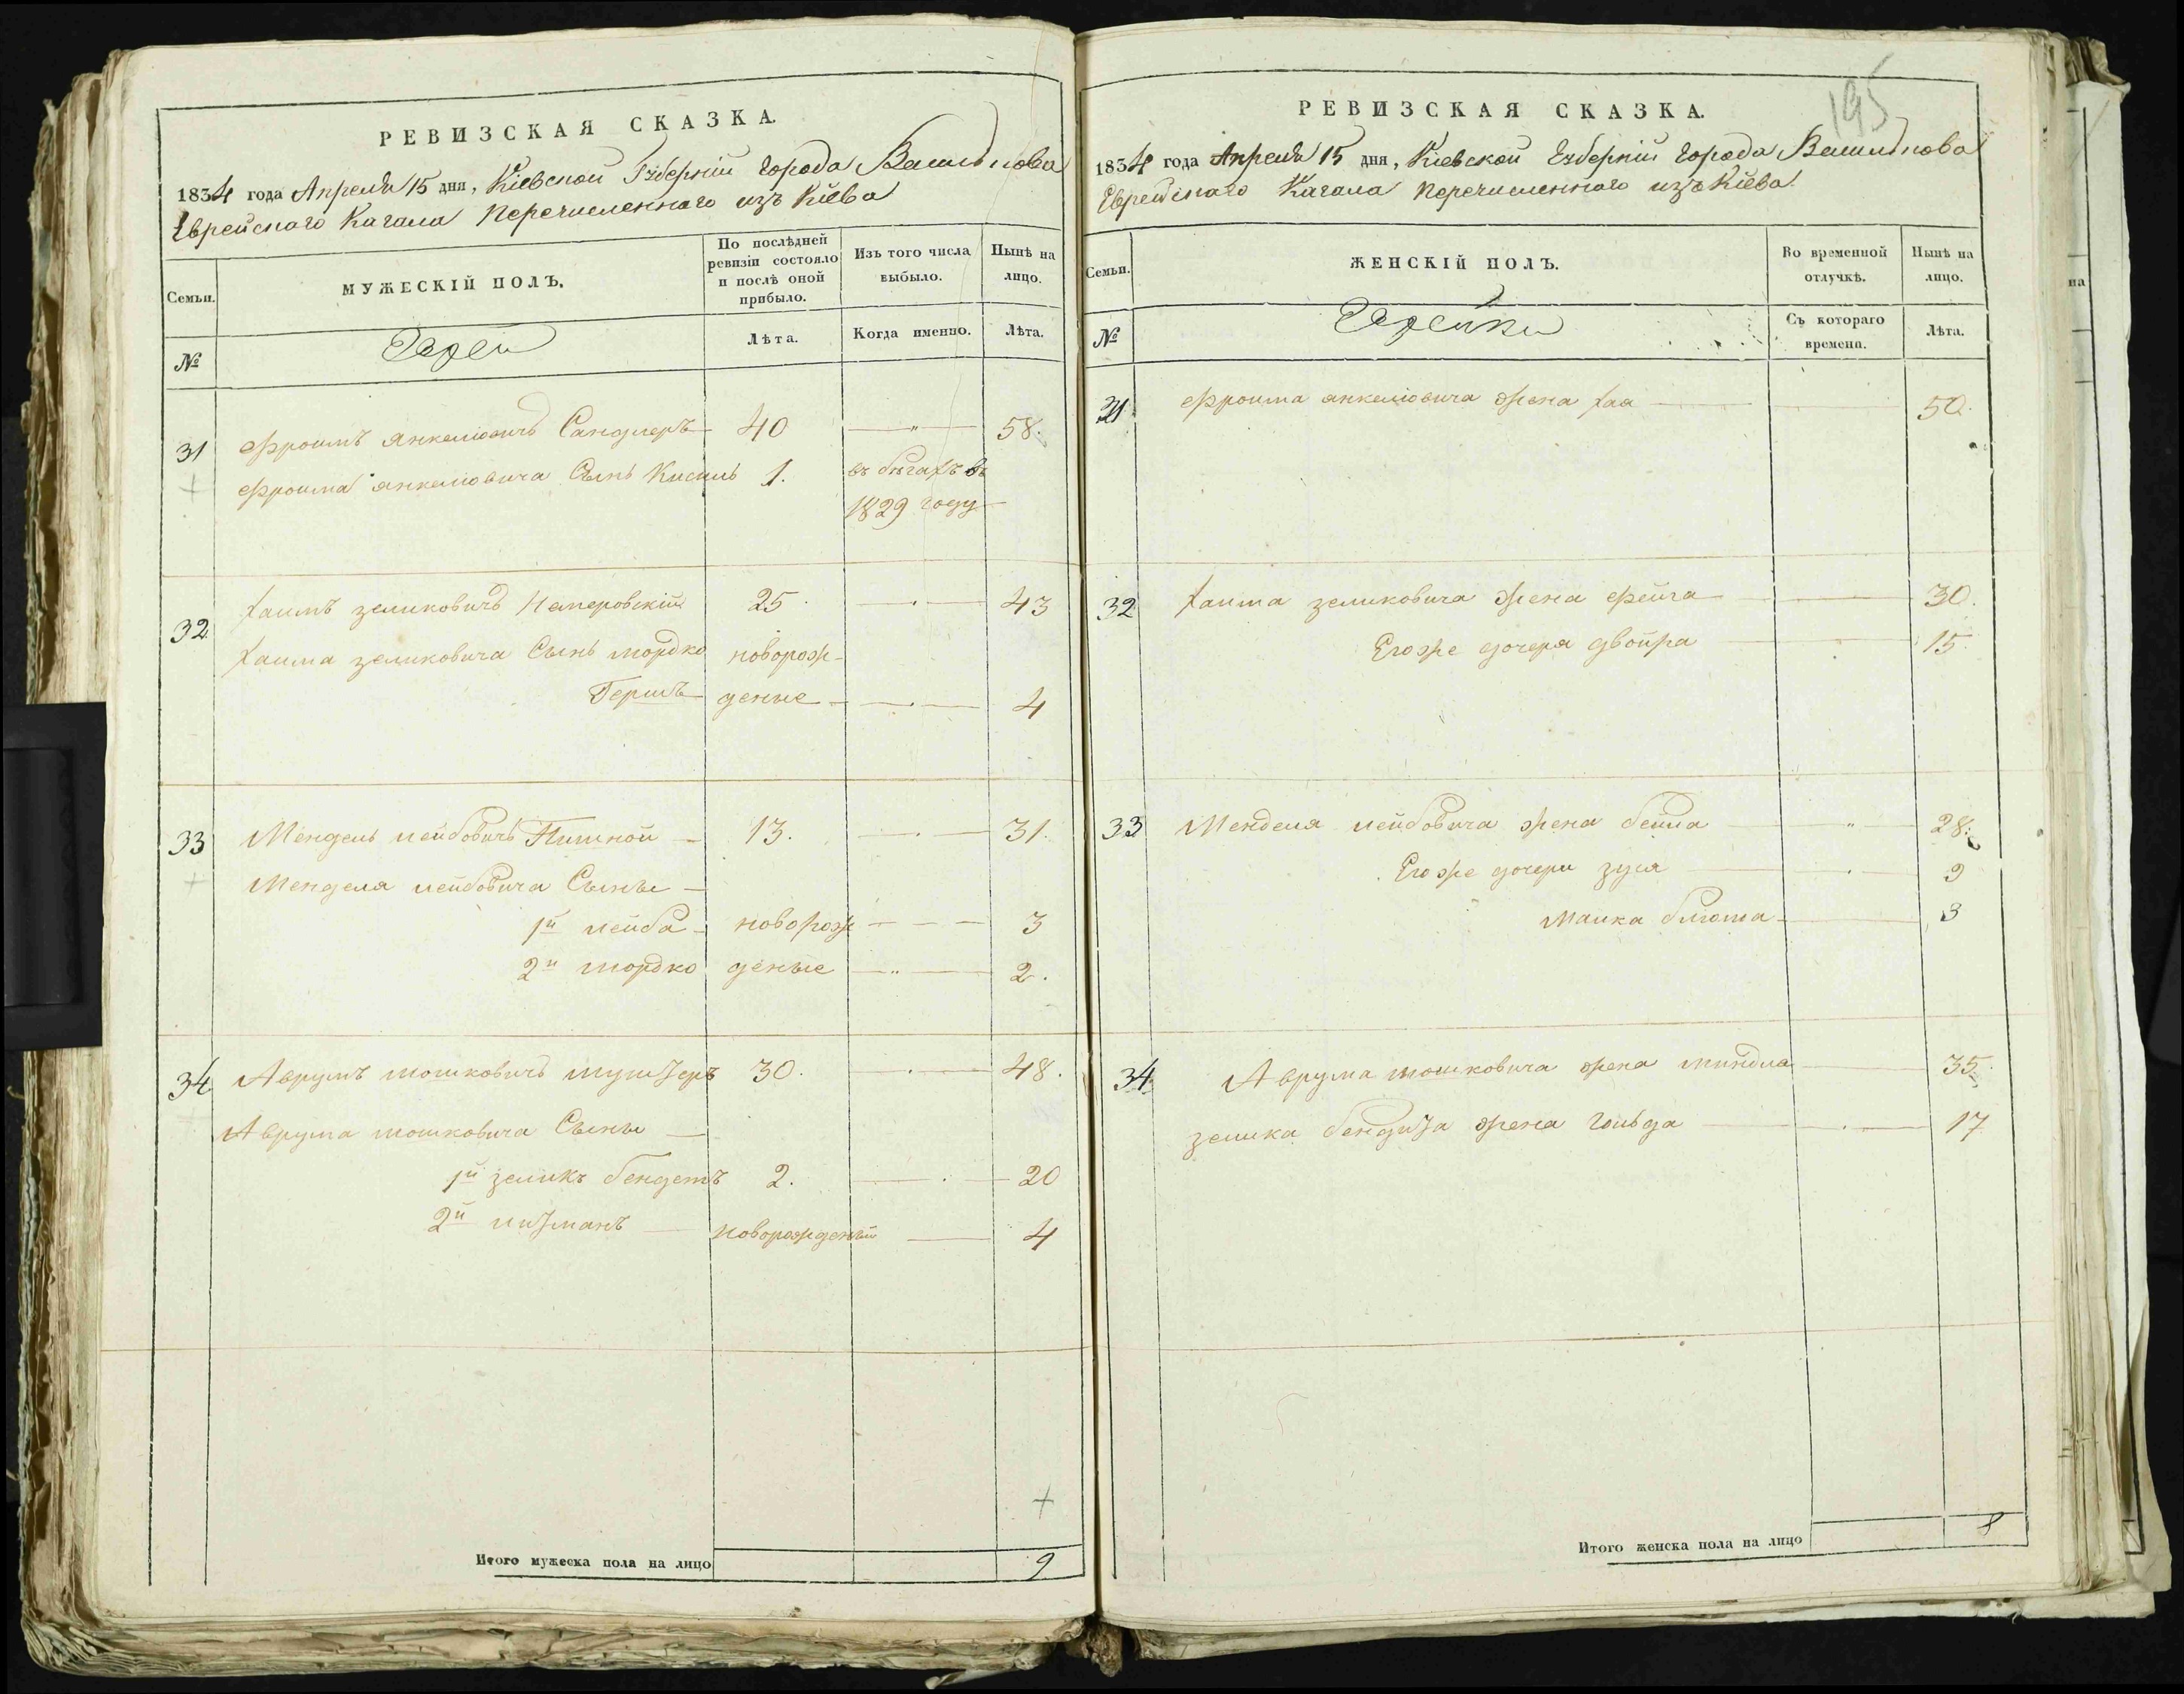 РЕВИЗСКАЯ СКАЗКА.
1834 года Апреля 15 дня, Кіевской Губерніи города Василькова
Еврейскаго Кагала перечисленнаго изъ Кіева
Семьи.
МУЖЕСКІЙ ПОЛЪ.
По послѣдней ревизіи состояло и послѣ оной прибыло.
Изъ того числа выбыло.
Нынѣ на лицо.
№
Евреи
Лѣта.
Когда именно.
Лѣта.
31 Фроимъ Янкелiовичъ Сандлеръ 40 — " — 58.
Фроима Янкелiовича Сынъ Кисиль 1. въ бѣгахъ въ
1829 году
32 Хаимъ Зеликовичъ Немеровскій 25 — 43
Хаима Зеликовича Сынъ Мордко новорож-
Гершъ деные — 4
33 Мендель Лейбовичъ 13. — 31.
Менделя Лейбовича Сыны —
1й Лейба — новорож — 3
2й Мордко деные — " — 2.
34 Аврумъ Мошковичъ 30. — 48.
Аврума Мошковича Сыны —
1й Зеликъ Бендетъ 2. — 20
2й Литманъ — новорожденый — 4
Итого мужеска пола на лицо 9
195
РЕВИЗСКАЯ СКАЗКА.
1834 года Апреля 15 дня, Кіевской Губерніи города Василькова
Еврейскаго Кагала перечисленнаго изъ Кіева.
Семьи.
ЖЕНСКІЙ ПОЛЪ.
Во временной отлучкѣ.
Нынѣ на лицо.
№
Еврейки
Съ котораго времени.
Лѣта.
31 Фроима Янкелiовича жена Хая — 50.
32 Хаима Зеликовича жена Фейга — 30.
Егоже дочеря Двойра — 15.
33 Менделя Лейбовича жена Бейла — " — 28.
Егоже дочери Зуся — 9
Малка Блюма — 3
34 Аврума Мошковича жена Миндля — 35.
Зелика Бендита жена Гольда — 17
Итого женска пола на лицо 8